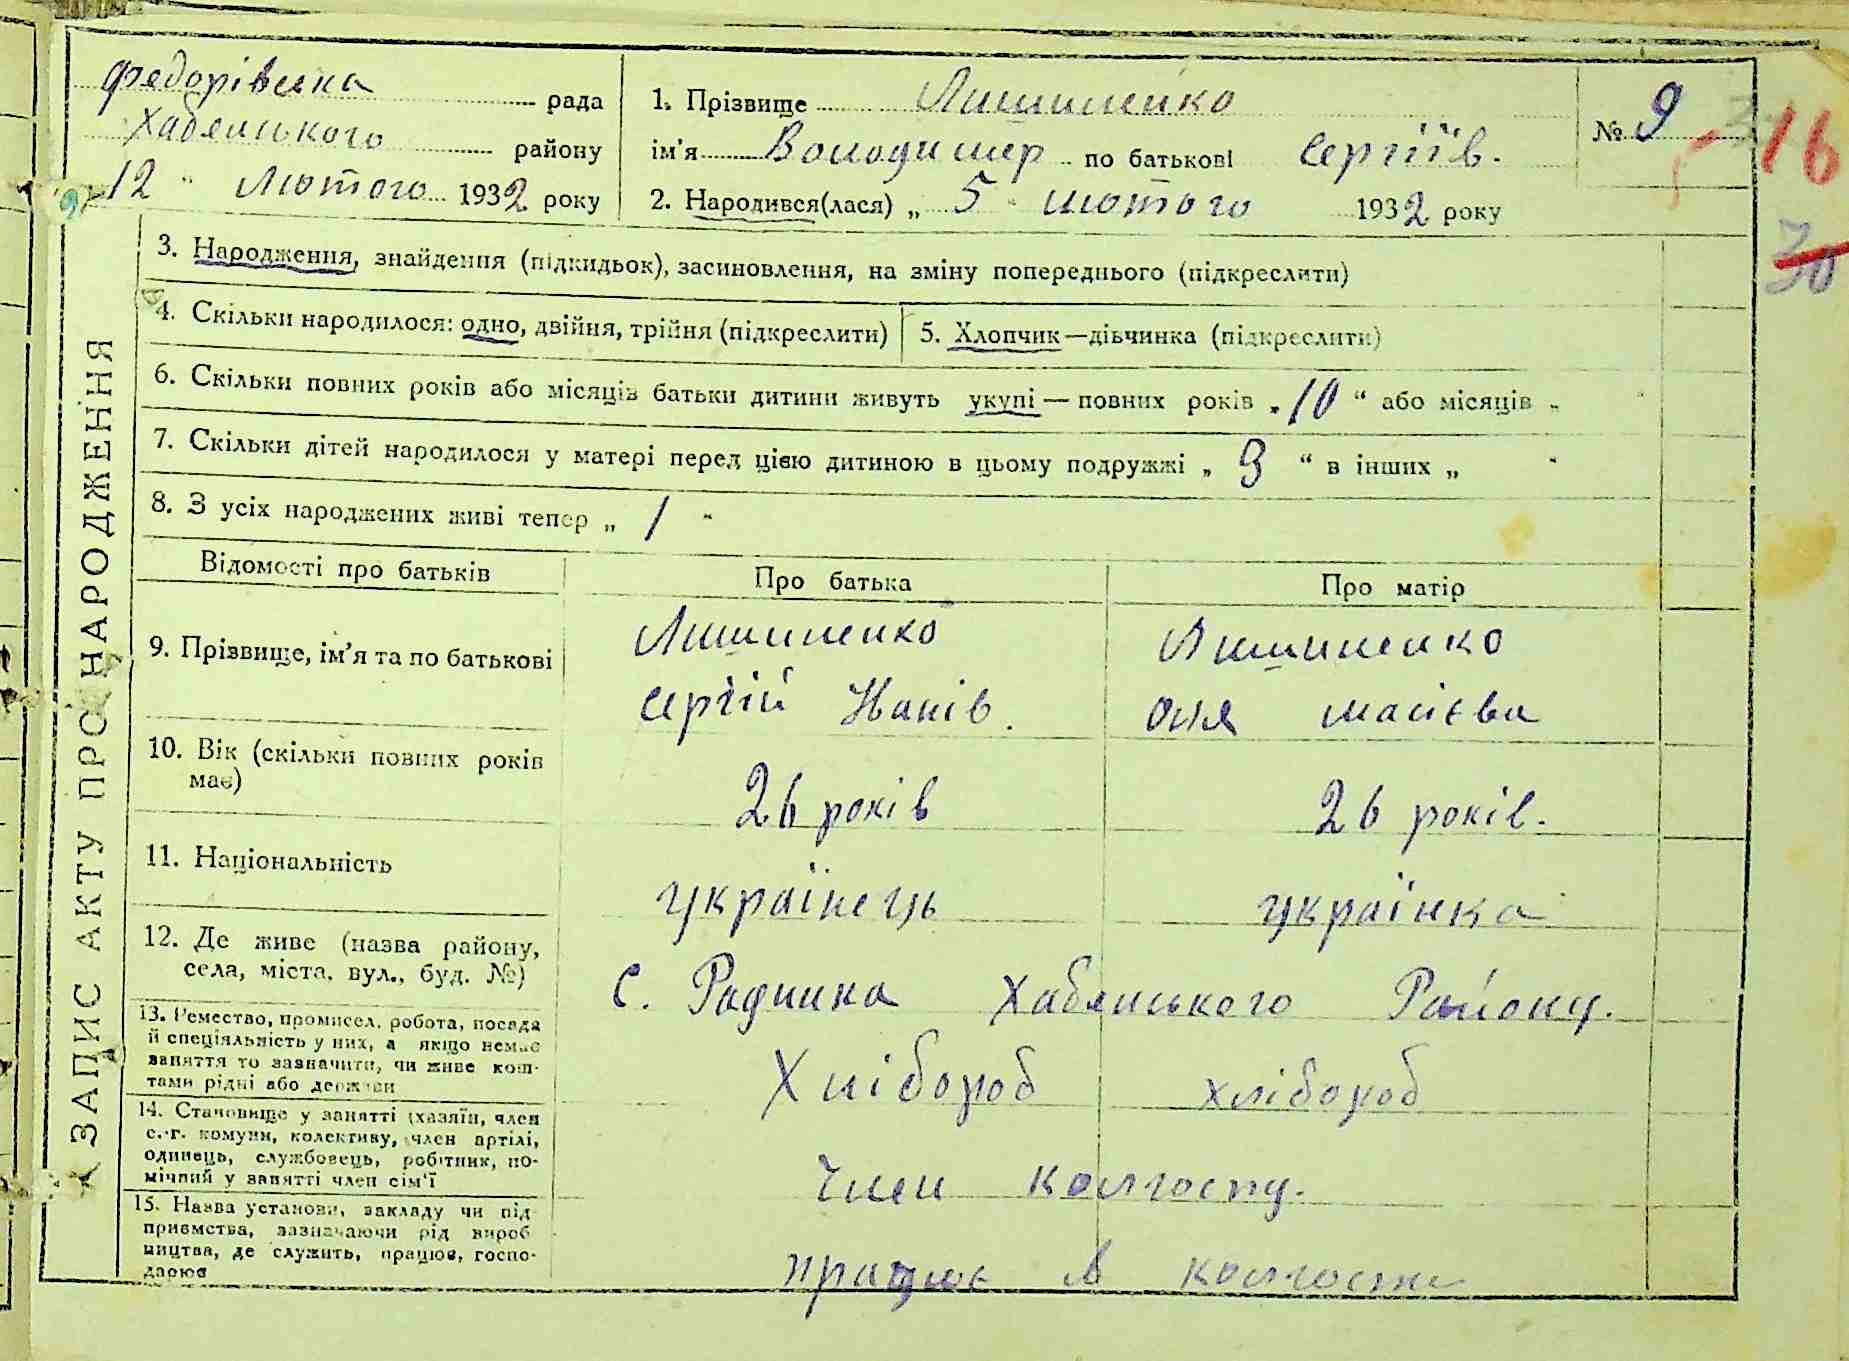 Федорівська рада
Хабенського району
"12" Лютого 1932 року
1. Прізвище Лишиленко
ім'я Володимер по батькові Сергіїв.
2. Народився(лася) „ 5 " лютого 1932 року
№ 9
16
30
3. Народження, знайдення (підкидьок), засиновлення, на зміну попереднього (підкреслити)
4. Скільки народилося: одно, двійня, трійня (підкреслити)
5. Хлопчик—дівчинка (підкреслити)
6. Скільки повних років або місяців батьки дитини живуть укупі — повних років „ 10 “ або місяців „ "
7. Скільки дітей народилося у матері перед цією дитиною в цьому подружжі „ 3 “ в інших „ "
8. З усіх народжених живі тепер „ 1 "
Відомості про батьків
Про батька
Про матір
9. Прізвище, ім'я та по батькові
Лишиленко
Сергій Іванів.
Лишиленко
Оля
10. Вік (скільки повних років
має)
26 років
26 років.
11. Національність
українець
українка
12. Де живе (назва району,
села, міста, вул., буд. №)
с. Радинка Хабенського Району.
13. Ремество, промисел, робота, посада
й спеціяльність у них, а якщо немає
заняття то зазначити, чи живе кош-
тами рідні або держави
Хлібороб
хлібороб
14. Становище у занятті (хазяїн, член
с.-г. комуни, колективу, член артілі,
одинець, службовець, робітник, по-
мічний у занятті член сім'ї
Член колгоспу.
15. Назва установи, закладу чи під-
приємства, зазначаючи рід вироб
ництва, де служить, працює, госпо-
дарює
працює в колгоспі
ЗАПИС АКТУ ПРО НАРОДЖЕННЯ